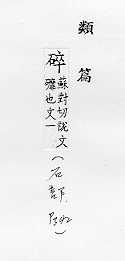 類篇
碎蘇對切說文
䃺也文一
(石部 P.342)